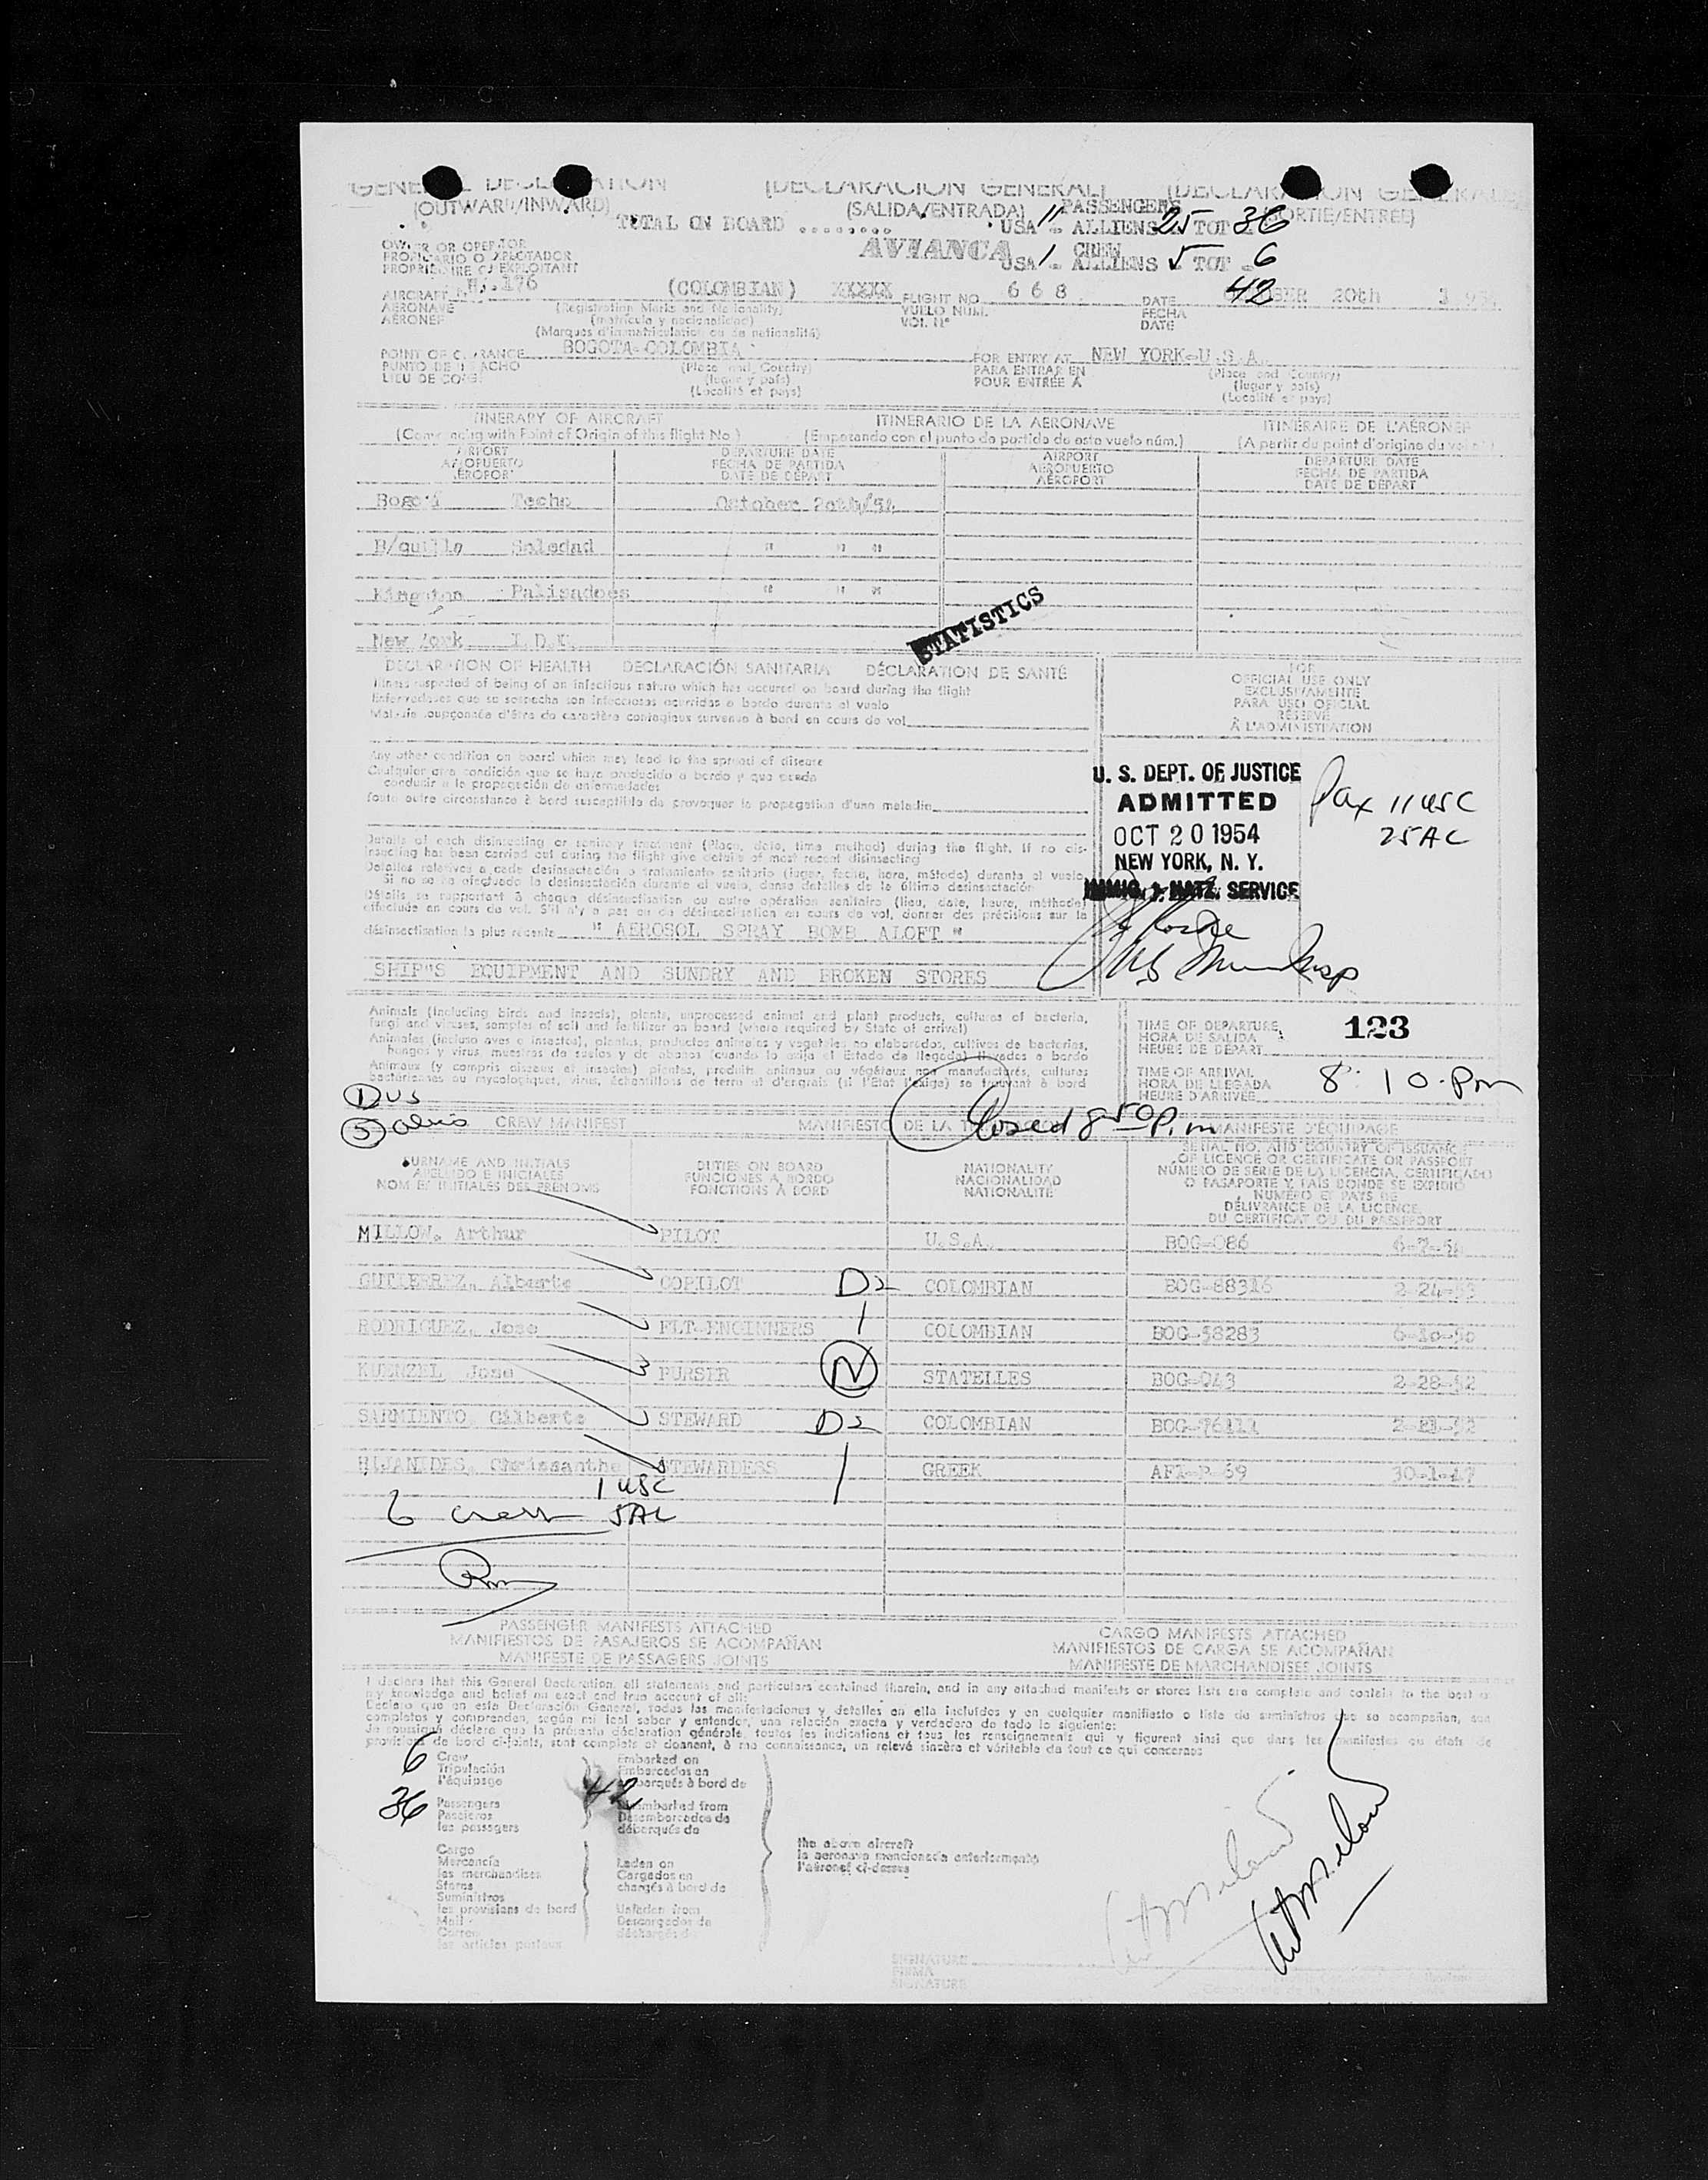 GENERAL DECLARATION (DECLARACIÓN GENERAL) (DÉCLARATION GÉNÉRALE)
(OUTWARD/INWARD) (SALIDA/ENTRADA) (SORTIE/ENTRÉE)
TOTAL ON BOARD ........ PASSENGERS
USA 11 - ALLIENS 25 TOT 36
OWNER OR OPERATOR
PROPIETARIO O EXPLOTADOR
PROPRIÉTAIRE OU EXPLOITANT
AVIANCA CREW
USA 1 - ALLIENS 5 TOT - 6
42
AIRCRAFT HJ.176 (COLOMBIAN) XXXXX FLIGHT NO. 668 DATE OCTOBER 20th
AERONAVE VUELO NÚM. FECHA
AÉRONEF VOL Nº DATE
(Registration Marks and Nationality)
(matrícula y nacionalidad)
(Marques d'immatriculation ou de nationalité)
POINT OF CLEARANCE BOGOTA-COLOMBIA FOR ENTRY AT NEW YORK-U.S.A.
PUNTO DE DESPACHO (Place and Country) PARA ENTRAR EN (Place and Country)
LIEU DE CONGÉ (lugar y país) POUR ENTRÉE À (lugar y país)
(Localité et pays) (Localité et pays)
ITINERARY OF AIRCRAFT ITINERARIO DE LA AERONAVE ITINÉRAIRE DE L'AÉRONEF
(Commencing with Point of Origin of this flight No.) (Empezando con el punto de partida de este vuelo núm.) (A partir du point d'origine du vol n°)
AIRPORT DEPARTURE DATE AIRPORT DEPARTURE DATE
AEROPUERTO FECHA DE PARTIDA AEROPUERTO FECHA DE PARTIDA
AÉROPORT DATE DE DÉPART AÉROPORT DATE DE DÉPART
Bogotá Techo October 20th/54
B/quilla Soledad " " "
Kingston Palisadoes " " "
STATISTICS
New York I.D.L.
DECLARATION OF HEALTH DECLARACIÓN SANITARIA DÉCLARATION DE SANTÉ
Illness suspected of being of an infectious nature which has occurred on board during the flight
Enfermedades que se sospecha son infecciosas ocurridas a bordo durante el vuelo
Maladie soupçonnée d'être de caractère contagieux survenue à bord en cours de vol
FOR
OFFICIAL USE ONLY
EXCLUSIVAMENTE
PARA USO OFICIAL
RÉSERVÉ
À L'ADMINISTRATION
Any other condition on board which may lead to the spread of disease
Cualquier otra condición que se haya producido a bordo y que pueda
conducir a la propagación de enfermedades
Toute autre circonstance à bord susceptible de provoquer la propagation d'une maladie
U. S. DEPT. OF JUSTICE
ADMITTED
OCT 20 1954
NEW YORK, N. Y.
IMMIG. & NATZ. SERVICE
Pax 11 USC
25 AC
Details of each disinsecting or sanitary treatment (Place, date, time method) during the flight. If no dis-
insecting has been carried out during the flight give details of most recent disinsecting
Detalles relativos a cada desinsectación o tratamiento sanitario (lugar, fecha, hora, método) durante el vuelo
Si no se ha efectuado la desinsectación durante el vuelo, dense detalles de la última desinsectación
Détails se rapportant à chaque désinsectisation ou autre opération sanitaire (lieu, date, heure, méthode)
effectuée en cours de vol. S'il n'y a pas eu de désinsectisation au cours de vol, donner des précisions sur la
désinsectisation la plus récente " AEROSOL SPRAY BOMB ALOFT "
SHIP"S EQUIPMENT AND SUNDRY AND BROKEN STORES
Animals (including birds and insects), plants, unprocessed animal and plant products, cultures of bacteria,
fungi and viruses, samples of soil and fertilizer on board (where required by State of arrival)
Animales (incluso aves e insectos), plantas, productos animales y vegetales no elaborados, cultivos de bacterias,
hongos y virus, muestras de suelos y de abonos (cuando lo exija el Estado de llegada) llevados a bordo
Animaux (y compris oiseaux et insectes) plantes, produits animaux ou végétaux non manufacturés, cultures
bactériennes ou mycologiques, virus, échantillons de terre ou d'engrais (si l'État l'exige) se trouvant à bord
TIME OF DEPARTURE 123
HORA DE SALIDA
HEURE DE DÉPART
TIME OF ARRIVAL 8:10 Pm
HORA DE LLEGADA
HEURE D'ARRIVÉE
1 US
5 aliens
Closed 8:50 P.m
CREW MANIFEST MANIFIESTO DE LA MANIFESTE D'ÉQUIPAGE
SURNAME AND INITIALS DUTIES ON BOARD NATIONALITY SERIAL NO. AND COUNTRY OF ISSUANCE
APELLIDO E INICIALES FUNCIONES A BORDO NACIONALIDAD OF LICENCE OR CERTIFICATE OR PASSPORT
NOM ET INITIALES DES PRÉNOMS FONCTIONS À BORD NATIONALITÉ NÚMERO DE SERIE DE LA LICENCIA, CERTIFICADO
O PASAPORTE Y PAÍS DONDE SE EXPIDIÓ
NUMÉRO ET PAYS DE
DÉLIVRANCE DE LA LICENCE,
DU CERTIFICAT OU DU PASSEPORT
MILLOW. Arthur PILOT U.S.A. BOG-086 6-7-54
GUTIERREZ, Alberto COPILOT D2 COLOMBIAN BOG-88316 2-24-53
RODRIGUEZ, Jose FLT-ENGINNERS COLOMBIAN BOG-58283 6-10-50
KUENZEL, Jose PURSER N STATELLES BOG-043 2-28-52
SARMIENTO, Gilberto STEWARD D2 COLOMBIAN BOG-76111
HIJANIDES, Chrissanthe STEWARDESS GREEK AFI-P-59 30-1-47
1 USC
6 crew 5 AC
PASSENGER MANIFESTS ATTACHED CARGO MANIFESTS ATTACHED
MANIFIESTOS DE PASAJEROS SE ACOMPAÑAN MANIFIESTOS DE CARGA SE ACOMPAÑAN
MANIFESTE DE PASSAGERS JOINTS MANIFESTE DE MARCHANDISES JOINTS
I declare that this General Declaration, all statements and particulars contained therein, and in any attached manifests or stores lists are complete and contain to the best of
my knowledge and belief an exact and true account of all:
Declaro que en esta Declaración General, todas las manifestaciones y detalles en ella incluídos y en cualquier manifiesto o lista de suministros que se acompañan, son
completos y comprenden, según mi leal saber y entender, una relación exacta y verdadera de todo lo siguiente:
Je soussigné déclare que la présente déclaration générale, toutes les indications et tous les renseignements qui y figurent ainsi que dans les manifestes ou états de
provisions de bord ci-joints, sont complets et donnent, à ma connaissance, un relevé sincère et véritable de tout ce qui concerne:
6 Crew Embarked on
Tripulación Embarcados en
l'équipage embarqués à bord de
36 Passengers 42 Disembarked from
Pasajeros Desembarcados de
les passagers débarqués de
Cargo the above aircraft
Mercancía Laden on la aeronave mencionada anteriormente
les merchandises Cargados en l'aéronef ci-dessus
Stores chargés à bord de
Suministros
les provisions de bord Unladen from
Mail Descargados de
Correo déchargés de
les articles postaux
SIGNATURE
FIRMA
SIGNATURE